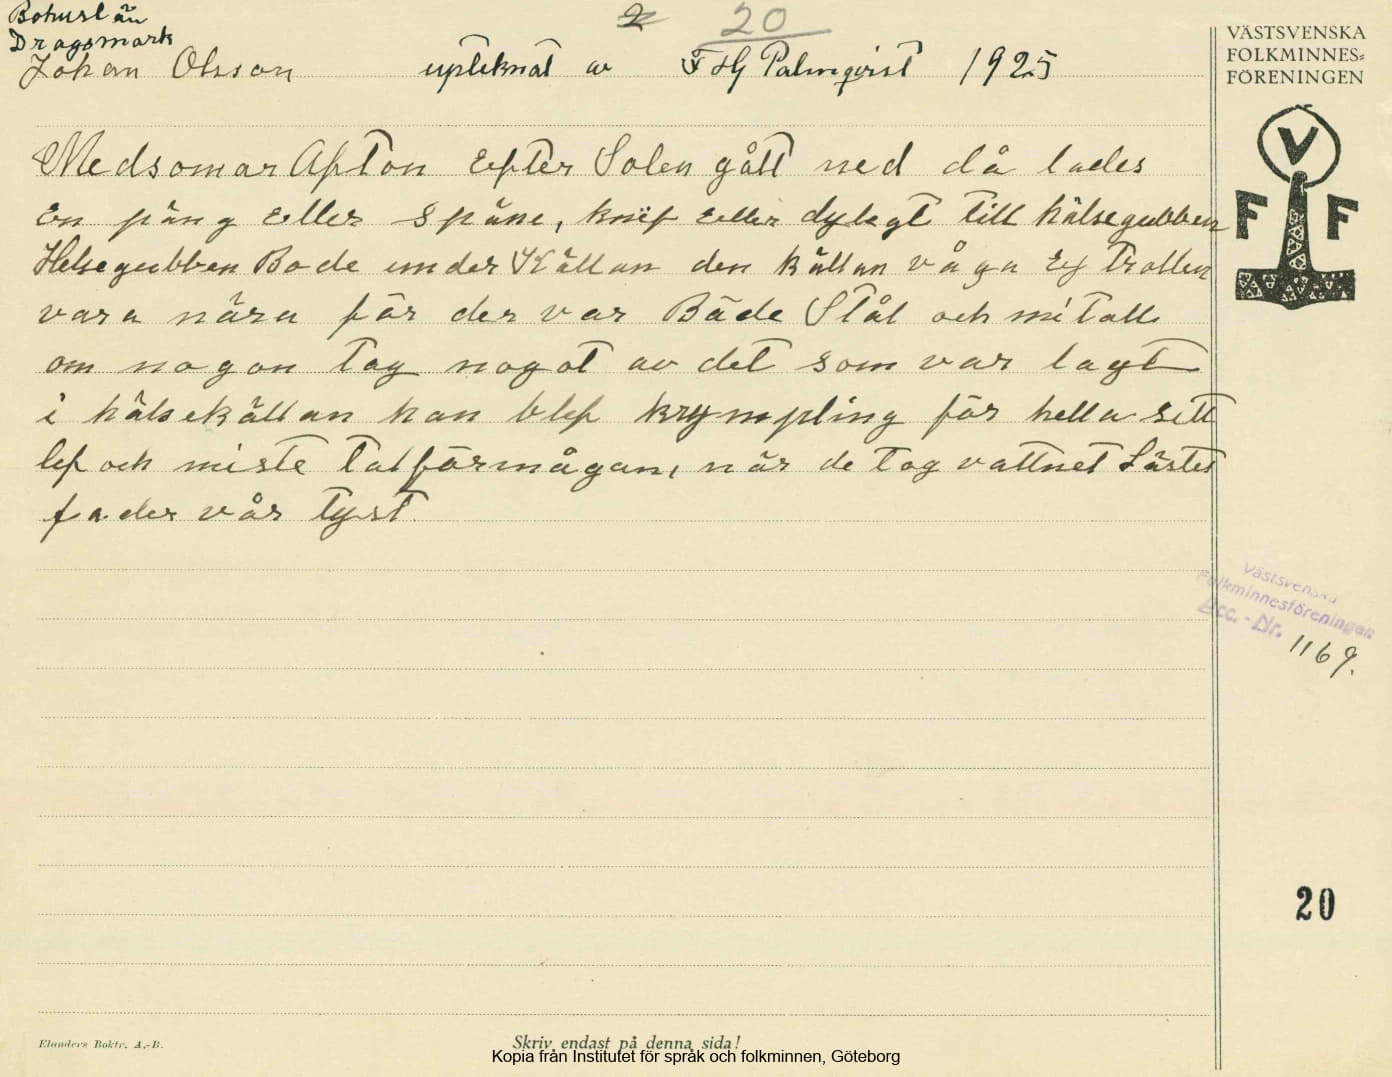 Bohuslän
Dragsmark
2 20
Johan Olsson upteknat av F HG Palmqvist 1925
VÄSTSVENSKA
FOLKMINNES=
FÖRENINGEN
V
F F
Medsomar Afton Eefter Solen gått ned då lades
En päng Eeller späne, knif Eeller dylegt till hälsegubben
Helsegubben Bode under Källan den källan våga Ej Trollen
vara nära för der var Både Stål och mitall
om nogon tog nogot av det som var lagt
i hälsekällan han blef krympling för hella sitt
lef och miste talförmågan, när de tog vattnet Lästes
fader vår tyst
Västsvenska
Folkminnesföreningen
Acc. - Nr. 1169.
20
Elanders Boktr. A.-B.
Skriv endast på denna sida!
Kopia från Institutet för språk och folkminnen, Göteborg